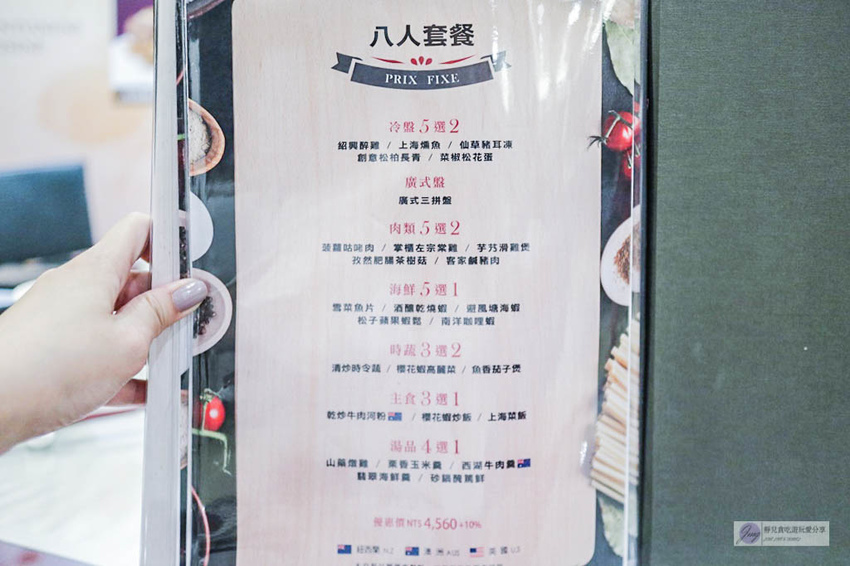 八人套餐
PRIX FIXE
冷盤5選2
紹興醉雞 / 上海燻魚 / 仙草豬耳凍
創意松柏長青 / 菜椒松花蛋
廣式盤
廣式三拼盤
肉類5選2
菠蘿咕咾肉 / 掌櫃左宗棠雞 / 芋艿滑雞煲
孜然肥腸茶樹菇 / 客家鹹豬肉
海鮮5選1
雪菜魚片 / 酒釀乾燒蝦 / 避風塘海蝦
松子蘋果蝦鬆 / 南洋咖哩蝦
時蔬3選2
清炒時令蔬 / 櫻花蝦高麗菜 / 魚香茄子煲
主食3選1
乾炒牛肉河粉 / 櫻花蝦炒飯 / 上海菜飯
湯品4選1
山藥燉雞 / 栗香玉米羹 / 西湖牛肉羹
翡翠海鮮羹 / 砂鍋醃篤鮮
優惠價NT$ 4,560+10%
紐西蘭NZ 澳洲AUS 美國US
靜兒貪吃遊玩愛分享